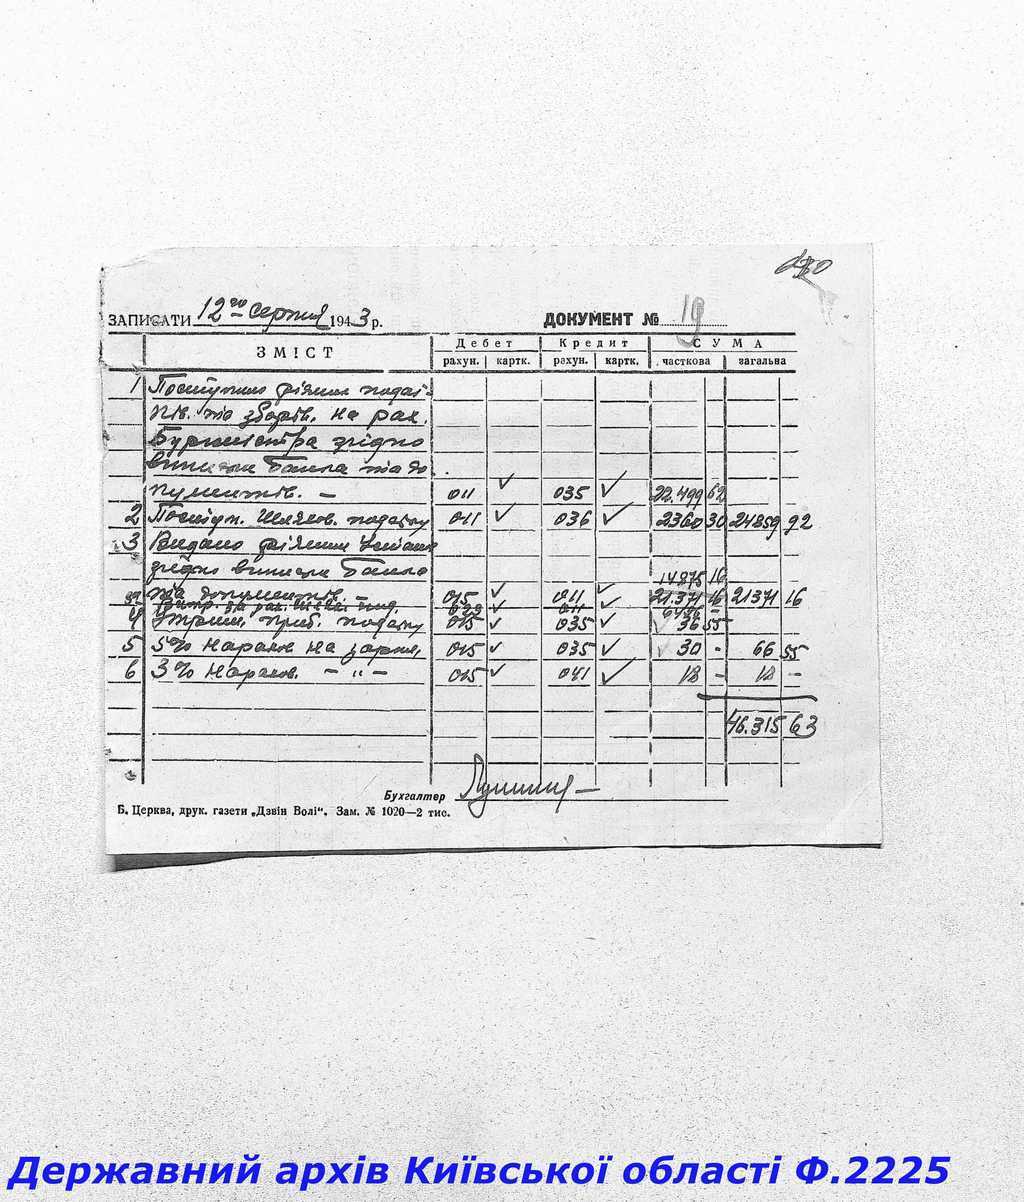 ЗАПИСАТИ 12го серпня 1943 р. ДОКУМЕНТ № 19
ЗМІСТ Дебет Кредит СУМА
рахун. картк. рахун. картк. часткова загальна
1 Поступило різних подат-
ків та зборів на рах.
Бурмістра згідно
виписки банка та до-
кументів. — 011 035 22.499 62
2 Поступ. шляхов. податку 011 036 2360 30 24859 92
3 Видано різним
згідно виписки банка
14875 16
та документів — 015 011 21.371 16 21371 16
за рах. 029 011 6496 —
4 Утрим. приб. податку 015 035 36 55
5 5% нарахов. на зарпл. 015 035 30 - 66 55
6 3% нарахов. — „ — 015 041 18 - 18 —
46.315 63
Бухгалтер
Б. Церква, друк. газети „Дзвін Волі“. Зам. № 1020—2 тис.
Державний архів Київської області Ф.2225